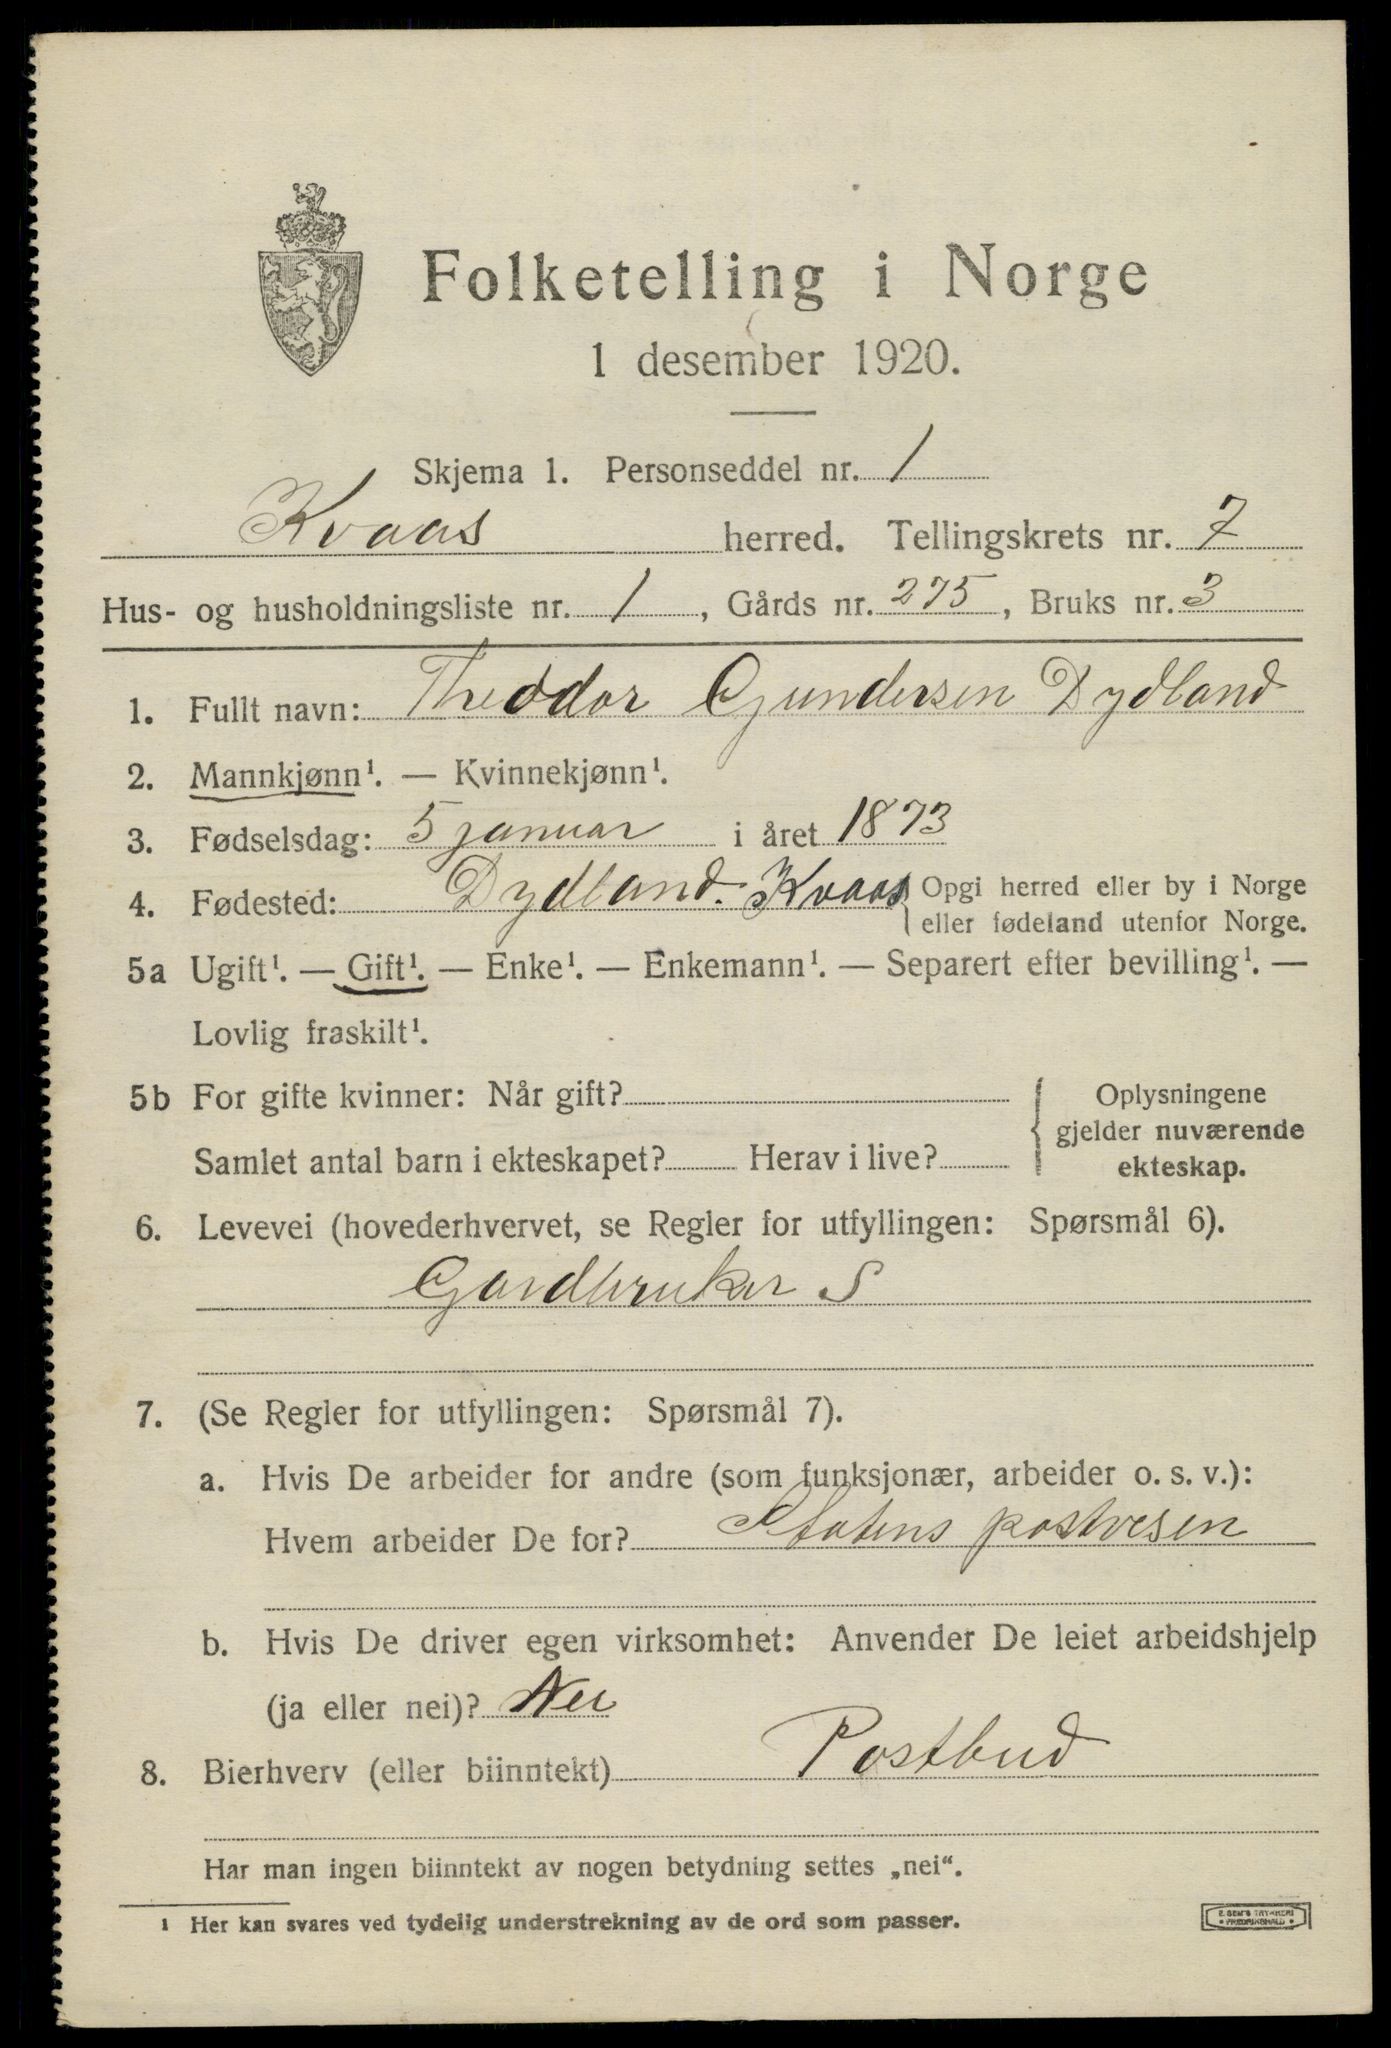 Folketelling i Norge
1 desember 1920.
Skjema 1. Personseddel nr. 1
Kvaas herred. Tellingskrets nr. 7
Hus- og husholdningsliste nr. 1, Gårds nr. 275, Bruks nr. 3
1. Fullt navn: Theodor Gundersen Dydland
2. Mannkjønn¹. — Kvinnekjønn¹.
3. Fødselsdag: 5 januar i året 1873
4. Fødested: Dydland. Kvaas { Opgi herred eller by i Norge
eller fødeland utenfor Norge.
5a Ugift¹. — Gift¹. — Enke¹. — Enkemann¹. — Separert efter bevilling¹. —
Lovlig fraskilt¹.
5b For gifte kvinner: Når gift?
Samlet antal barn i ekteskapet? Herav i live?
Oplysningene
gjelder nuværende
ekteskap.
6. Levevei (hovederhvervet, se Regler for utfyllingen: Spørsmål 6).
Gardbruker S
7. (Se Regler for utfyllingen: Spørsmål 7).
a. Hvis De arbeider for andre (som funksjonær, arbeider o. s. v.):
Hvem arbeider De for? Statens postvesen
b. Hvis De driver egen virksomhet: Anvender De leiet arbeidshjelp
(ja eller nei)? Nei
8. Bierhverv (eller biinntekt) Postbud
Har man ingen biinntekt av nogen betydning settes „nei“.
1 Her kan svares ved tydelig understrekning av de ord som passer.
E. SEM'S TRYKKERI
• FREDRIKSHALD •